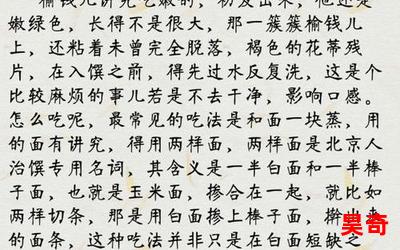 榆钱儿讲究吃嫩的，初发出来，他还是
嫩绿色，长得不是很大，那一簇簇榆钱儿
上，还粘着未曾完全脱落，褐色的花蒂残
片，在入馔之前，得先过水反复洗，这是个
比较麻烦的事儿若是不去干净，影响口感。
怎么吃呢，最常见的吃法是和面一块蒸，用
的面有讲究，得用两样面，两样面是北京人
治馔专用名词，其含义是一半白面和一半棒
子面，也就是玉米面，掺合在一起，就比如
两样切条，那是用白面掺上棒子面，擀出来
的面条，这种吃法并非只是在白面短缺之
昊奇